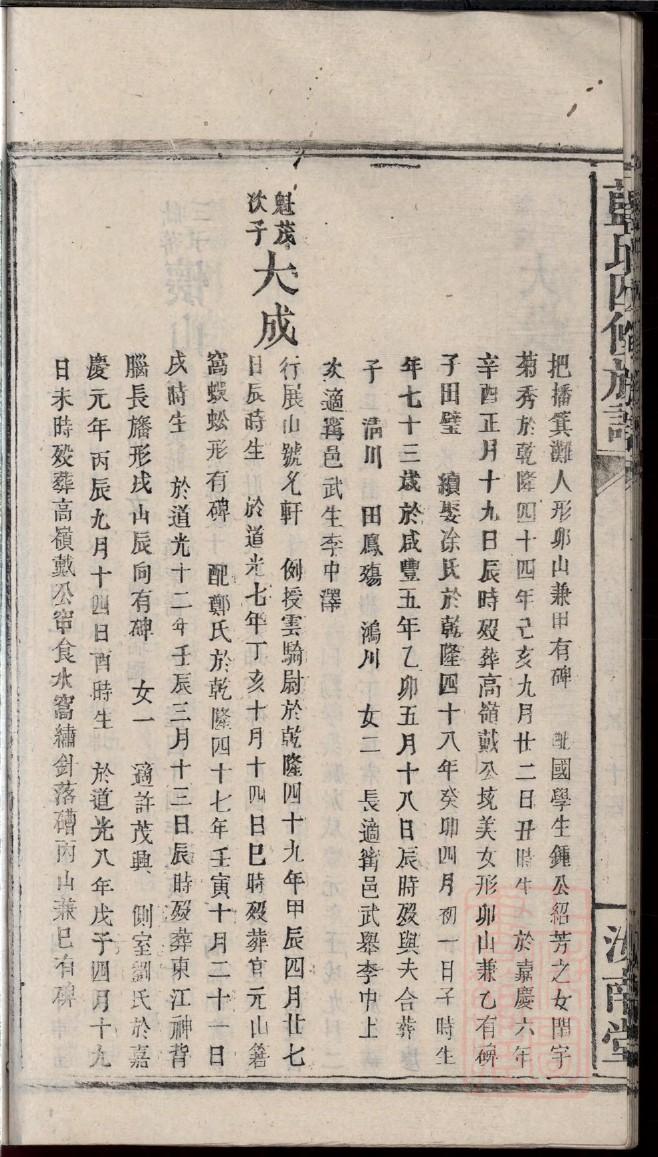 藍氏四修族譜
汝南堂
把播箕灘人形卯山兼甲有碑 配國學生鍾公紹芳之女閨字
菊秀於乾隆四十四年己亥九月廿二日丑時生 於嘉慶六年
辛酉正月十九日辰時歿葬高嶺戴公垅美女形卯山兼乙有碑
子田璧 續娶涂氏於乾隆四十八年癸卯四月初一日子時生
年七十三歲於咸豐五年乙卯五月十八日辰時歿與夫合葬
子 滿川 田鳳殤 鴻川 女二 長適甯邑武舉李中上
次適甯邑武生李中澤
魁茂次子大成
行展山號名軒 例授雲騎尉於乾隆四十九年甲辰四月廿七
日辰時生 於道光七年丁亥十月十四日巳時歿葬官元山箬
窩蜈蚣形有碑 配鄭氏於乾隆四十七年壬寅十月二十一日
戌時生 於道光十二年壬辰三月十三日辰時歿葬東江神背
腦長旛形戌山辰向有碑 女一 適許茂興 側室劉氏於嘉
慶元年丙辰九月十四日酉時生 於道光八年戊子四月十九
日未時歿葬高嶺戴公窜食水窩繡針落磹丙山兼巳有碑